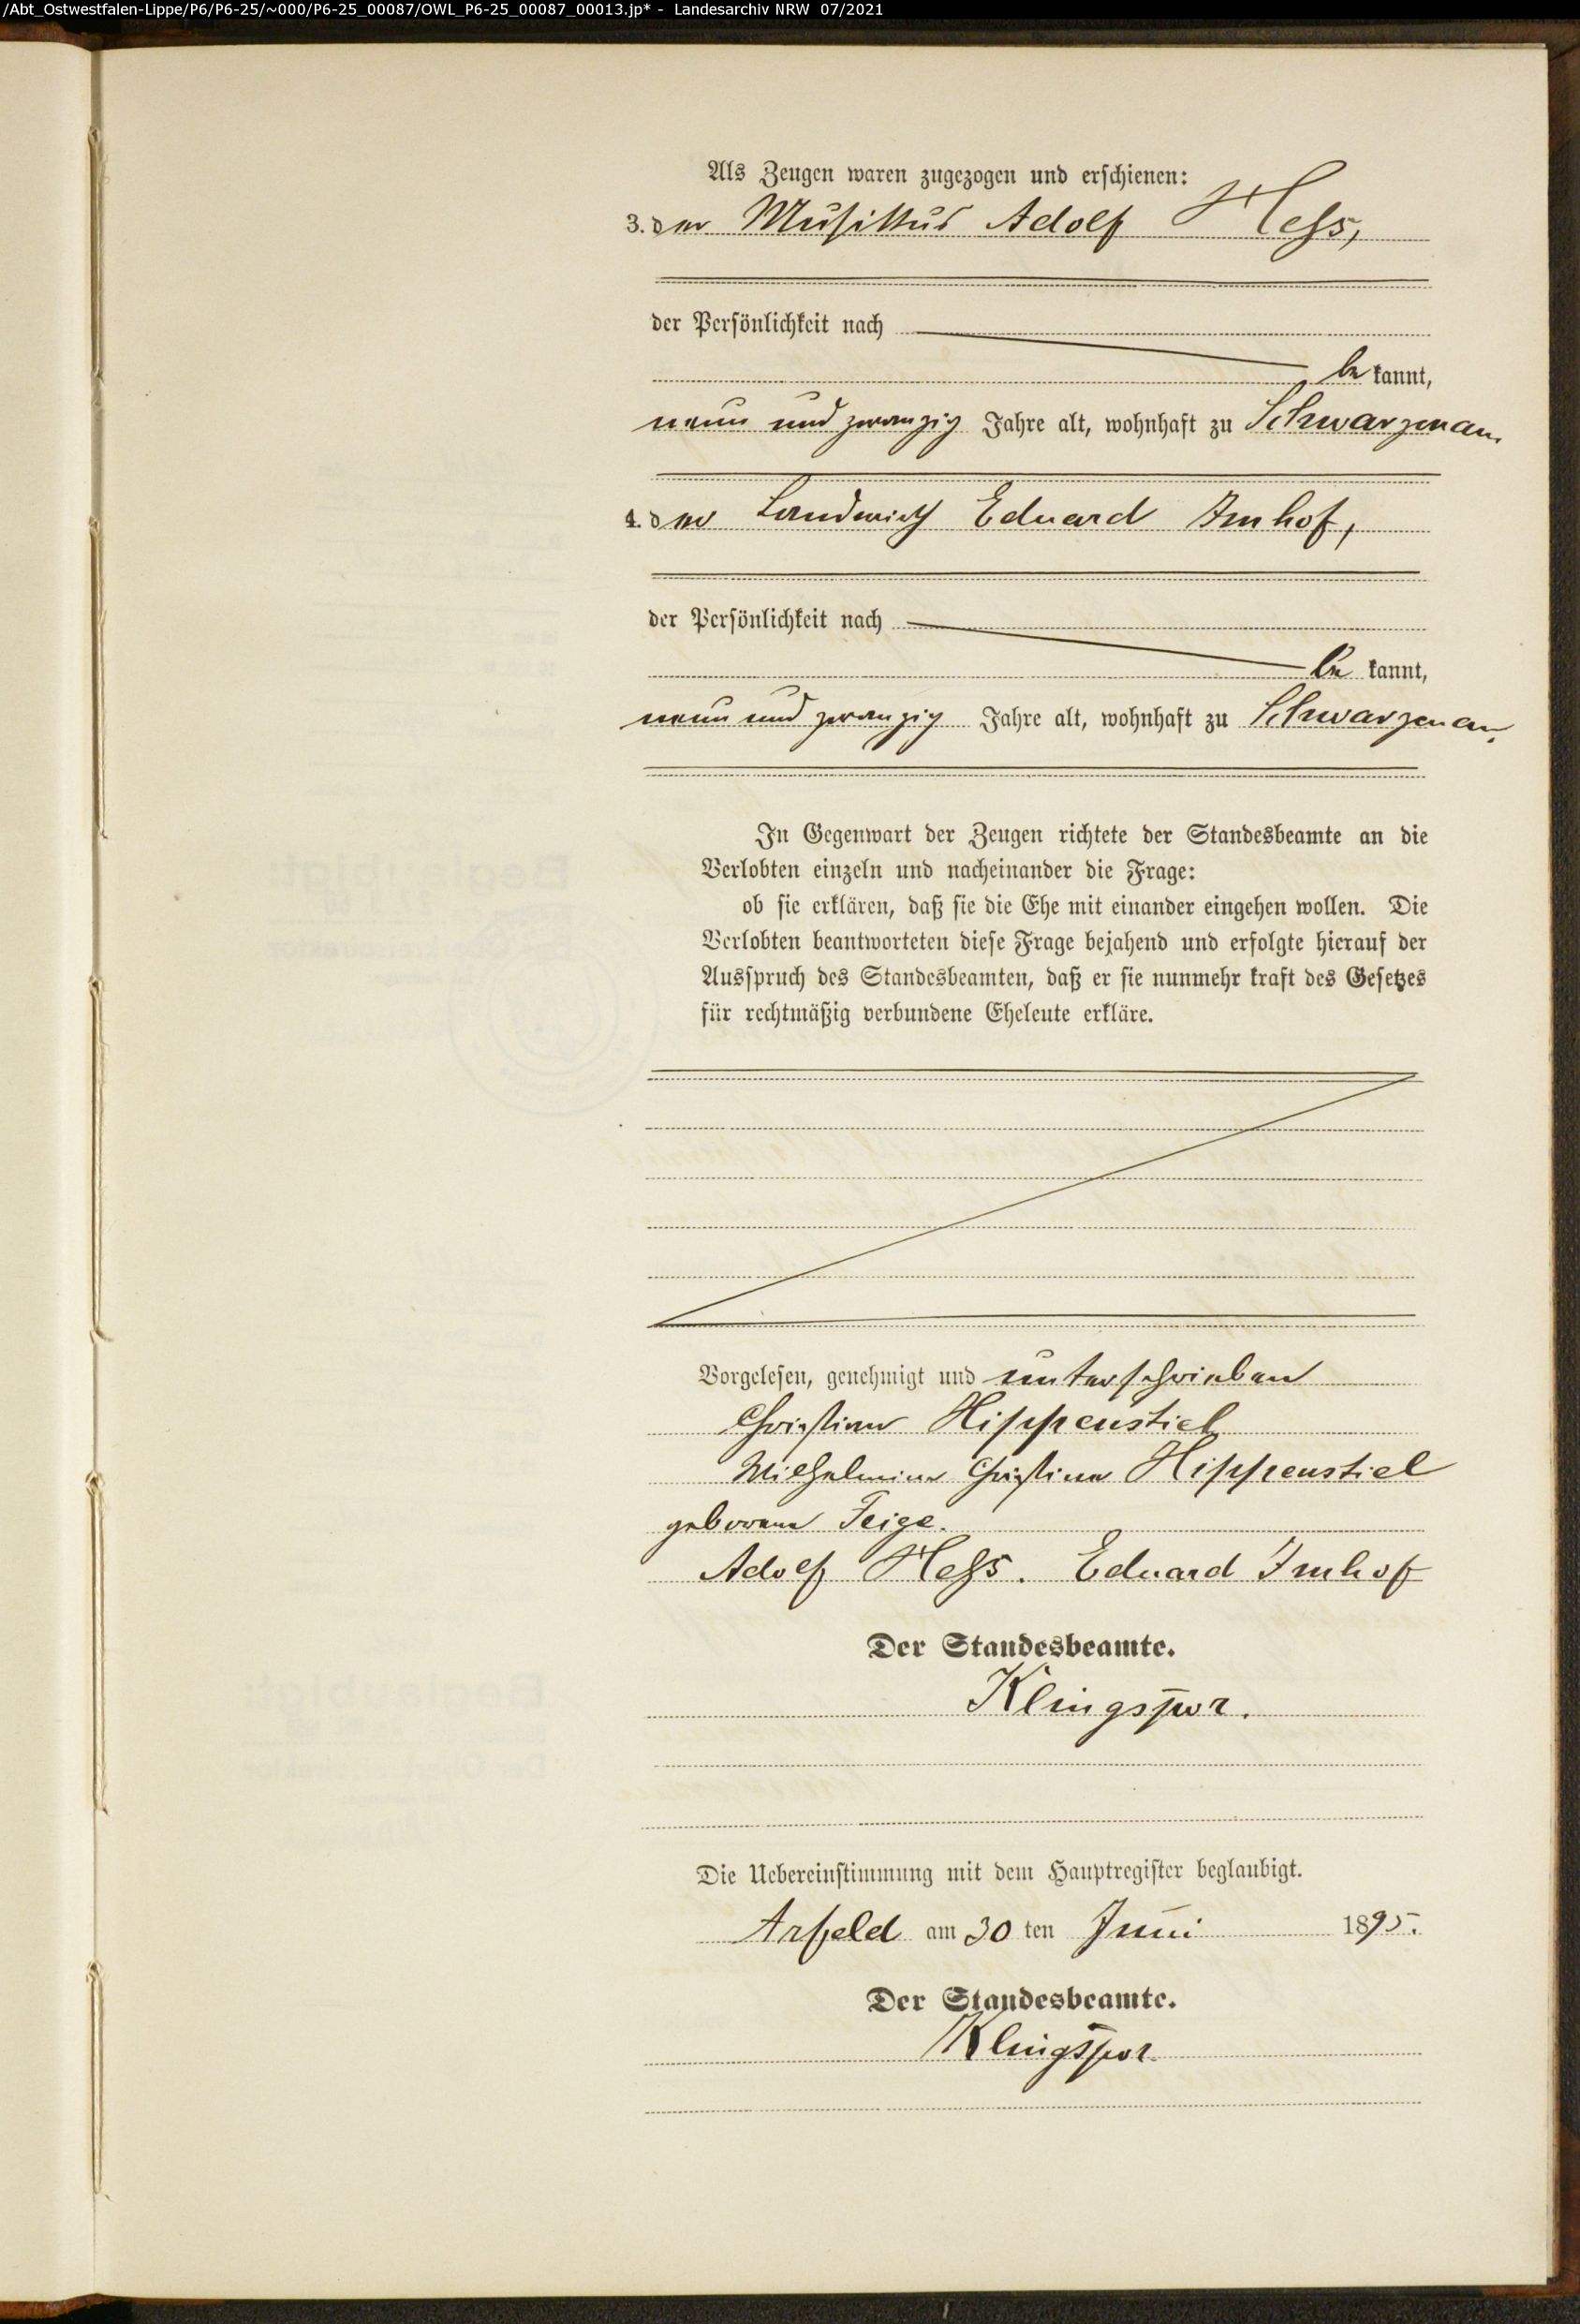 /Abt_Ostwestfalen-Lippe/P6/P6-25/~000/P6-25_00087/OWL_P6-25_00087_00013.jp* - Landesarchiv NRW 07/2021
Als Zeugen waren zugezogen und erschienen:
3. der Musikus Adolf Heß,
der Persönlichkeit nach
be kannt,
neun und zwanzig Jahre alt, wohnhaft zu Schwarzenau
4. der Landwirth Eduard Imhof,
der Persönlichkeit nach
be kannt,
neun und zwanzig Jahre alt, wohnhaft zu Schwarzenau.
In Gegenwart der Zeugen richtete der Standesbeamte an die
Verlobten einzeln und nacheinander die Frage:
ob sie erklären, daß sie die Ehe mit einander eingehen wollen. Die
Verlobten beantworteten diese Frage bejahend und erfolgte hierauf der
Ausspruch des Standesbeamten, daß er sie nunmehr kraft des Gesetzes
für rechtmäßig verbundene Eheleute erkläre.
Vorgelesen, genehmigt und unterschrieben
Christian Hippenstiel
Wilhelmine Christine Hippenstiel
geborene Feige.
Adolf Heß. Eduard Imhof
Der Standesbeamte.
Klingspor.
Die Uebereinstimmung mit dem Hauptregister beglaubigt.
Arfeld am 30 ten Juni 1895.
Der Standesbeamte.
Klingspor